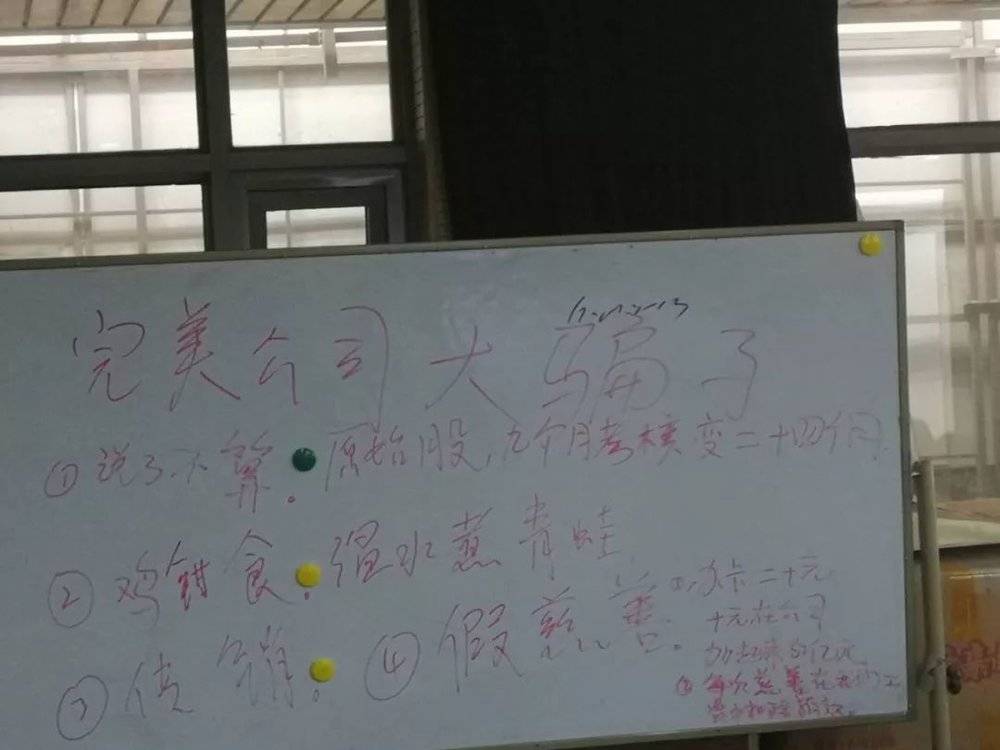 完美公司大骗子
①说了不算.原始股,九个月考核变二十四个月
②鸡钳食.温水煮青蛙
③传销.④假慈善.
①,办卡二十元
十元在公司
加起来
②每次慈善在